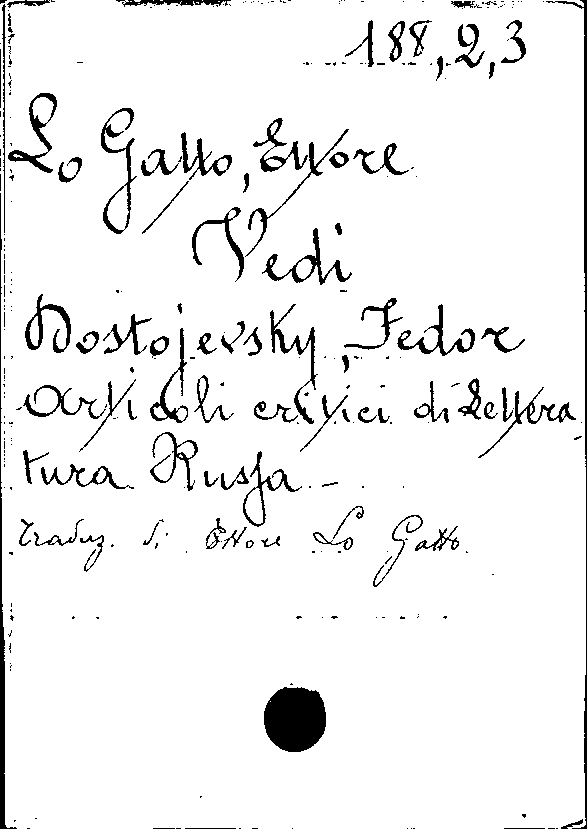 188,2,3
Lo Gatto, Ettore
Vedi
Dostojevsky, Fedor
Articoli critici di Lettera-
tura Russa -
Traduz. di Ettore Lo Gatto